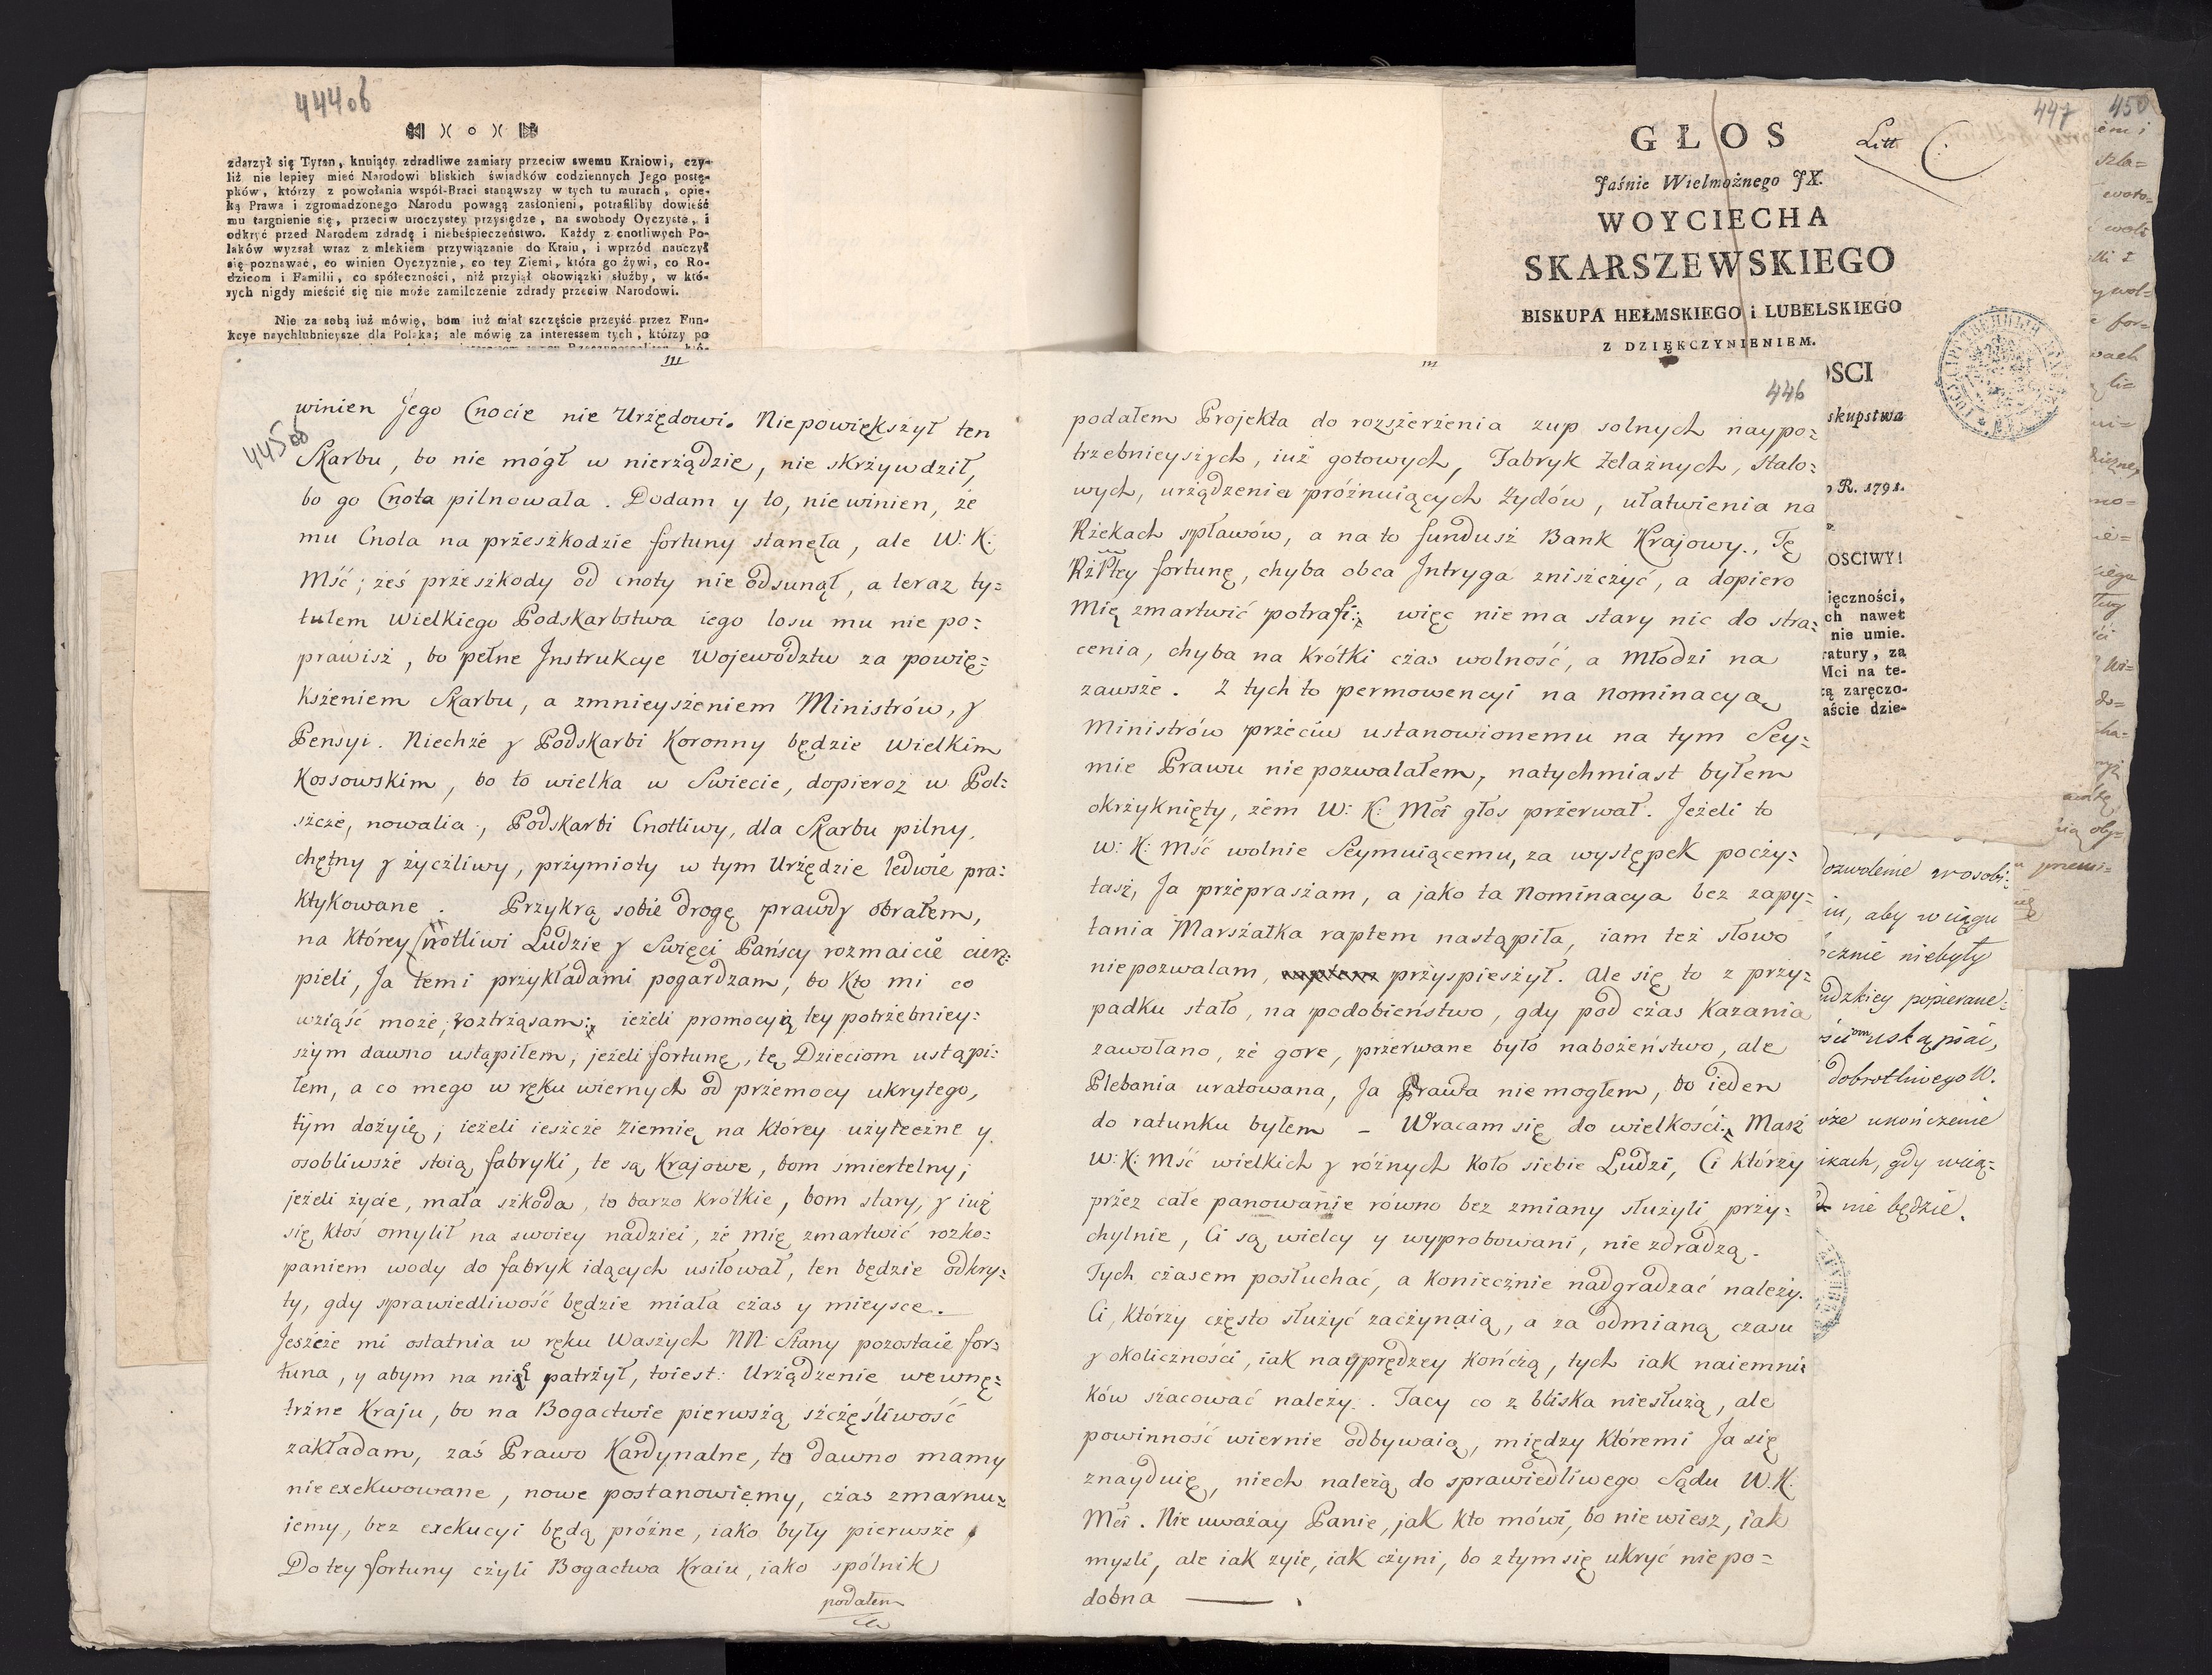 444 об
zdarzył się Tyran, knuiący zdradliwe zamiary przeciw swemu Kraiowi, czy-
liż nie lepiey mieć Narodowi bliskich świadków codziennych Jego postę-
pków, którzy z powołania wspól-Braci stanąwszy w tych tu murach, opie-
ką Prawa i zgromadzonego Narodu powagą zasłonieni, potrafiliby dowieść
mu targnienie się, przeciw uroczystey przysiędze, na swobody Oyczyste, i
odkryć przed Narodem zdradę i niebeśpieczeństwo. Każdy z cnotliwych Po-
laków wyzsał wraz z mlekiem przywiązanie do Kraiu, i wprzód nauczył
się poznawać, co winien Oyczyznie, co tey Ziemi, która go żywi, co Ro-
dzicom i Familii, co społeczności, niż przyiął obowiązki służby, w któ-
rych nigdy mieścić się nie może zamilczenie zdrady przeciw Narodowi.
Nie za sobą iuż mówię, bom iuż miał szczęście przeyść przez Fun-
kcye naychlubnieysze dla Polaka; ale mówię za interessem tych, którzy po
445 об
winien Jego Cnocie nie Urzędowi. Niepowiększył ten
Skarbu, bo nie mógł w nierżądzie, nie skrżywdził,
bo go Cnota pilnowała. Dodam y to, nie winien, że
mu Cnola na przeszkodzie fortuny stanęła, ale W: K:
Mść; żeś przeszkody od cnoty nie odsunął, a teraz ty=
tułem Wielkiego Podskarbstwa iego losu mu nie po=
prawisż, bo pełne Instrukcye Wojewodztw za powię=
kszeniem Skarbu, a zmnieyszeniem Ministrów, y
Pensyi. Niechże y Podskarbi Koronny będzie Wielkim
Kossowskim, bo to wielka w Swiecie, dopieroz w Pol=
szcze, nowalia, Podskarbi Cnotliwy, dla Skarbu pilny,
chętny y życżliwy, przymioty w tym Urzędzie ledwie pra=
ktykowane. Przykrą sobie drogę prawdy obrałem,
na którey Cnotliwi Ludzie y Swięci Pańscy rozmaicie cier=
pieli, Ja temi przykładami pogardzam, bo kto mi co
wziąść może, roztrżąsam: ieżeli promocyią tey potrżebniey=
szym dawno ustąpiłem, jeżeli fortunę, tę Dzieciom ustąpi=
łem, a co mego w ręku wiernych od przemocy ukrytego,
tym dożyię; ieżeli ieszcze Ziemię na którey użyteczne y
osobliwsze stoią fabryki, te są Krajowe, bom smiertelny;
jeżeli życie, mała szkoda, to barzo krótkie, bom stary, y iuż
się ktoś omylił na swoiey nadziei, że mię zmartwić rozko=
paniem wody do fabryk idących usiłował, ten będzie odkry=
ty, gdy sprawiedliwość będzie miała czas y mieysce.
Jeszcze mi ostatnia w ręku Waszych NN: Stany pozostaie for=
tuna, y abym na nię patrżył, toiest: Urżądzenie wewnę=
trżne Kraju, bo na Bogactwie pierwszą szczęśliwość
zakładam, zaś Prawo Kardynalne, to dawno mamy
nieexekwowane, nowe postanowięmy, czas zmarnu=
iemy, bez exekucyi będą próżne, iako były pierwsze
Do tey fortuny czyli Bogactwa Kraiu, iako spólnik
podałem
446
podałem Projekta do rozszerżenia zup solnych naypo=
trzebnieyszych, iuż gotowych, Fabryk Żelażnych, Stalo=
wych, urżądzenia próżnuiących Żydów, ułatwienia na
Rżekach spławów, a na to fundusż Bank Krajowy., Tę
RżPtey fortunę, chyba obca Intryga zniszczyć, a dopiero
Mię zmartwić potrafi: więc niema stary nic do stra=
cenia, chyba na krótki czas wolność, a Młodzi na
zawsze. Z tych to permowencyi na nominacyą
Ministrów przeciw ustanowionemu na tym Sey=
mie Prawu niepozwalałem, natychmiast byłem
okrżyknięty, żem W: K: Mći głos przerwał. Jeżeli to
W: K: Mść wolnie Seymuiącemu, za występek poczy=
tasz, Ja przepraszam, a jako ta Nominacya bez zapy=
tania Marszałka raptem nastąpiła, iam też słowo
niepozwalam, przyspieszył. Ale się to z przy=
padku stało, na podobieństwo, gdy pod czas Kazania
zawołano, że gore, przerwane było nabożeństwo, ale
Plebania uratowana, Ja Prawa niemogłem, bo ieden
do ratunku byłem – Wracam się do wielkości: Masz
W: K: Mść wielkich y różnych koło siebie Ludzi, Ci którzy
przez całe panowanie równo bez zmiany służyli przy=
chylnie, Ci są wielcy y wyprobowani, nie zdradzą.
Tych czasem posłuchać, a koniecznie nadgradzać należy.
Ci, którzy często służyć zaczynaią, a za odmianą czasu
y okoliczności, iak nayprędzey kończą, tych iak naiemni=
ków szacować należy. Tacy co z bliska niesłużą, ale
powinność wiernie odbywaią, między któremi Ja się
znayduię, niech należą do sprawiedliwego Sądu W. K.
Mći. Nie uważay Panie, jak kto mówi, bo nie wiesz, iak
mysli, ale iak zyie, iak czyni, bo z tym się ukryć niepo=
dobna
447
450
Litt C:
GŁOS
Jaśnie Wielmożnego JX.
WOYCIECHA
SKARSZEWSKIEGO
BISKUPA HEŁMSKIEGO i LUBELSKIEGO
Z DZIĘKCZYNIENIEM.
OSCI
skupstwa
R. 1791.
OSCIWY!
ięczności,
ch nawet
nie umie.
ratury, za
Mci na te-
zą zaręczo-
aście dzie-
dozwolenie w osobi=
iu, aby w ciągu
cznie niebyły
udzkiey popierane=
ustąpiać,
dobrotliwego W.
oże ukończenie
ikach, gdy wcią=
nie będzie.